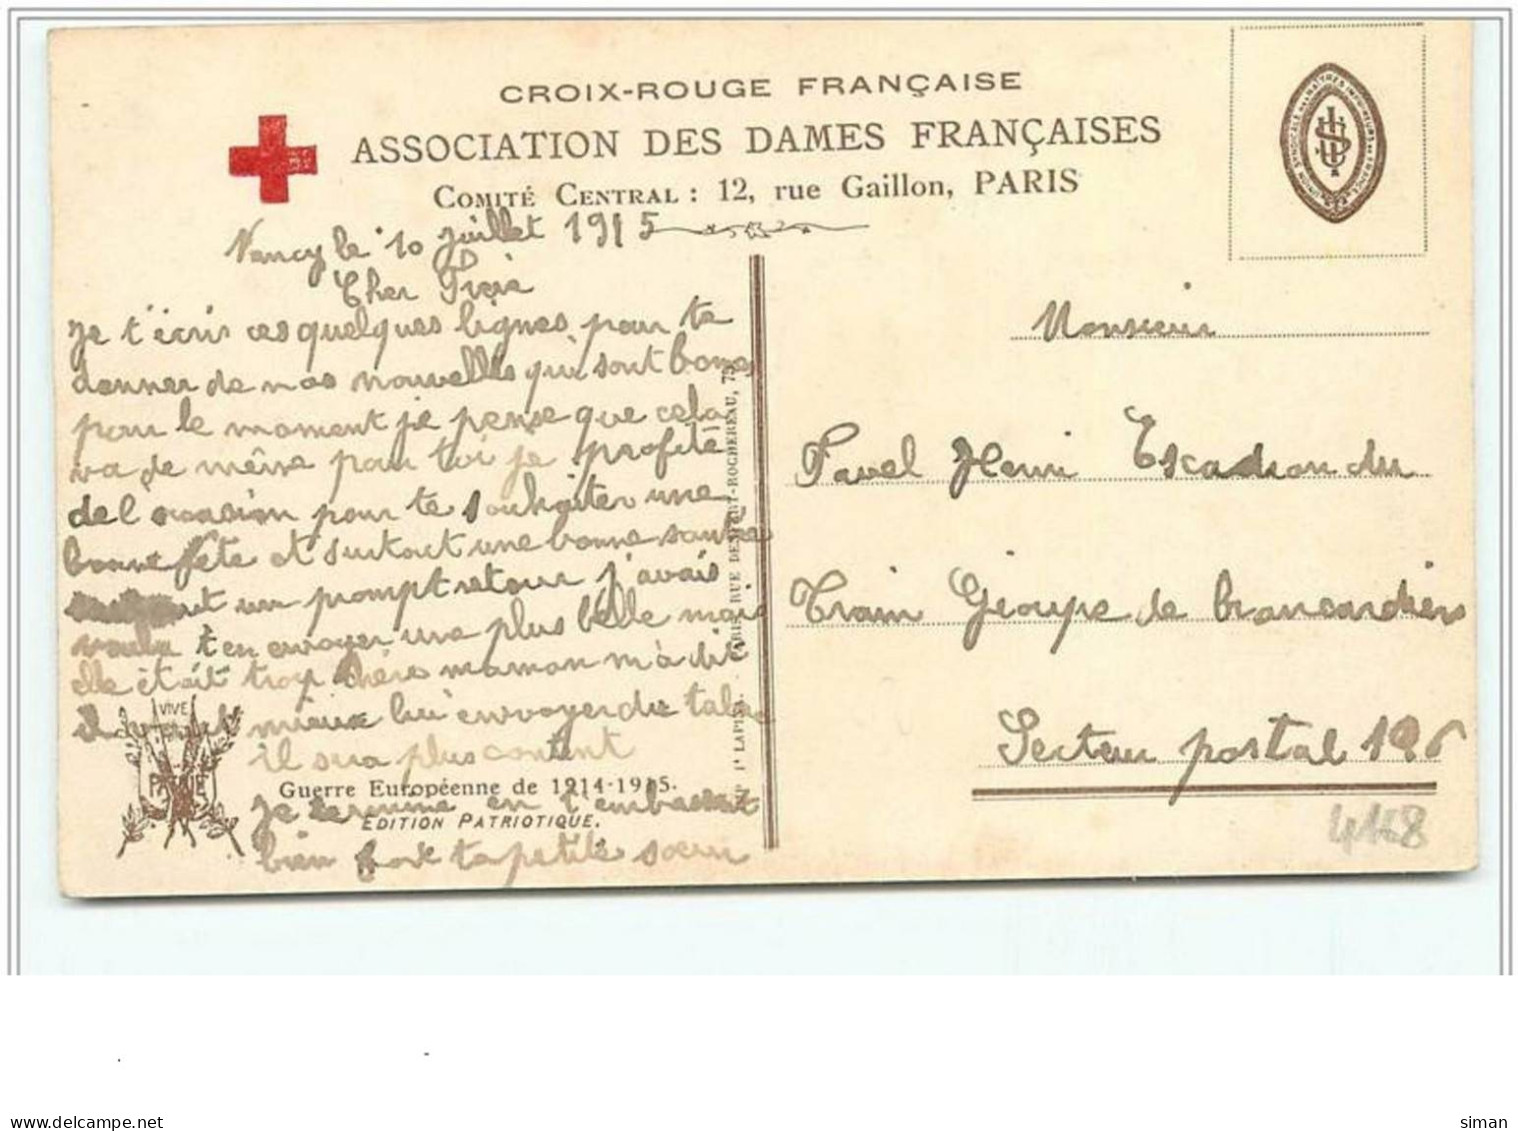 CROIX-ROUGE FRANÇAISE
ASSOCIATION DES DAMES FRANÇAISES
COMITÉ CENTRAL : 12, rue Gaillon, PARIS
Nancy le 10 juillet 1915
Cher Frère
je t'écris ces quelques lignes pour te
donner de nos nouvelles qui sont bones
pour le moment je pense que cela
va de même pour toi je profite
de l'occasion pour te souhaiter une
bonne fête et surtout une bonne santée
et un prompt retour j'avais
voulu t'en envoyer une plus belle mais
elle était trop chère maman m'a dit
il vaut mieux lui envoyer du tabac
il sera plus content
VIVE
PATRIE
Guerre Européenne de 1914-1915.
je termine en t'embrassant
EDITION PATRIOTIQUE.
bien fort ta petite soeur
RUE DENFERT-ROCHEREAU, 75
Monsieur
Pavel Henri Escadron du
Train Groupe de brancardiers
Secteur postal 126
4148
siman